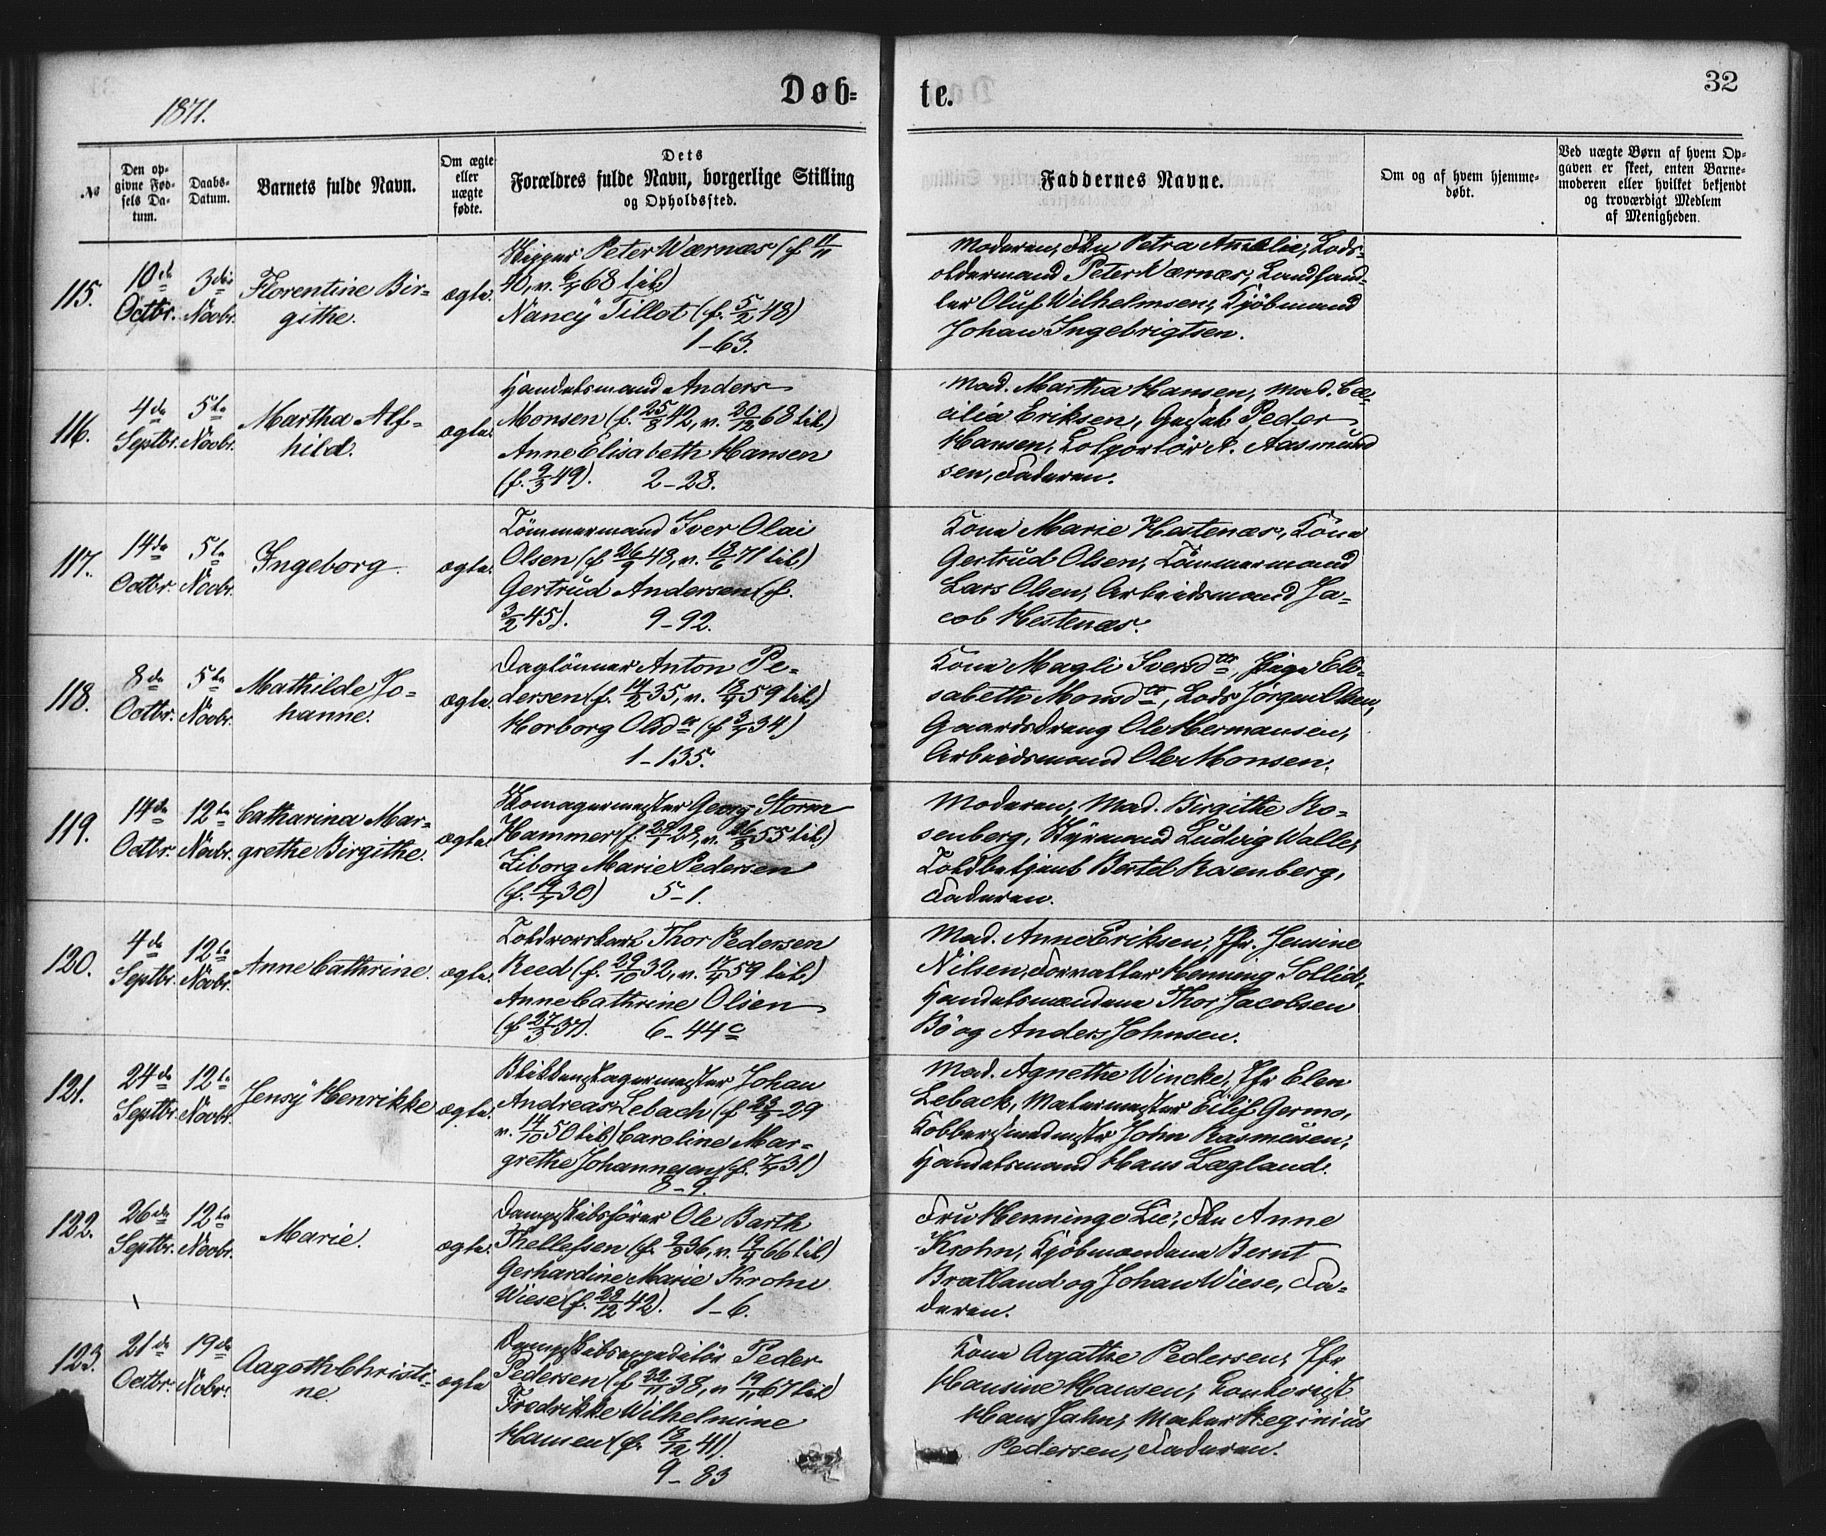 1871.
Døb-
te.
32
No
Den op-
givne Fød-
sels Da-
tum.
Daabs-
Datum.
Barnets fulde Navn.
Om ægte
eller
uægte
fødte.
Dets
Forældres fulde Navn, borgerlige Stilling
og Opholdssted.
Faddernes Navne.
Om og af hvem hjemme-
døbt.
Ved uægte Børn af hvem Op-
gaven er skeet, enten Barne-
moderen eller hvilket bekjendt
og troværdigt Medlem
af Menigheden.
115.
10de
Octbr.
3die
Novbr.
Florentine Bir-
githe.
ægte.
Skipper Peter Wærnæs (f. 11/11
40, v. 6/4 68 til)
Nancÿ Tillot (f. 5/2 48)
1-63.
Moderen, Frk Petra Amalie, Lods-
oldermand Peter Værnæs, Landhand-
ler Oluf Wilhelmsen, Kjøbmand
Johan Ingebrigtsen.
116.
4de
Septbr.
5te
Novbr.
Martha Alf-
hild.
ægte.
Handelsmand Anders
Monsen (f. 25/8 42, v. 20/12 68 til)
Anne Elisabeth Hansen
(f. 9/3 49). 2-28.
Mad. Martha Hansen, Mad. Ce-
cilia Eriksen, Peder
Hansen, Kolportör A. Aasmund
sen, Faderen.
117.
14de
Octbr.
5te
Novbr.
Ingeborg.
ægte.
Tömmermand Iver Olai
Olsen (f. 26/9 43, v. 13/6 71 til)
Gertrud Andersen (f.
3/2 45). 9-92.
Kone Marie Hestenæs, Kone
Gertrud Olsen, Tømmermand
Lars Olsen, Arbeidsmand Ja-
cob Hestenæs.
118.
8de
Octbr.
5te
Novbr.
Mathilde Jo-
hanne.
ægte.
Daglönner Anton Pe-
dersen (f. 14/2 35, v. 18/4 59 til)
Horborg Olsdtr (f 3/4 34)
1-135.
Kone Magli Iversdtr, Pige Eli-
sabeth Monsdtr, Lods Jørgen Olsen,
Gaardsdreng Ole Hermansen,
Arbeidsmand Ole Monsen.
119.
14de
Octbr.
12te
Novbr.
Catharina Mar-
grethe Birgithe.
ægte.
Skomagermester Georg Storm
Hammer (f. 29/1 28, v. 26/8 55 til)
Ziborg Marie Pedersen
(f. 19/4 30) 5-1.
Moderen, Mad. Birgithe Ro-
senberg, Styrmand Ludvig Walle,
Toldbetjent Bertel Rosenberg,
Faderen.
120.
4de
Septbr.
12te
Novbr.
Anne Cathrine.
ægte.
Toldrorskarl Thor Pedersen
Reed (f. 29/10 32, v. 17/4 59 til)
Anne Cathrine Olsen
(f 27/3 37). 6-44c
Mad. Anne Eriksen, Jfr. Jensine
Nilsen, Forvalter Henning Sollid,
Handelsmændene Thor Jacobsen
Bö og Anders Johnsen.
121.
24de
Septbr.
12te
Novbr.
Jensÿ Henrikke
ægte.
Blikkenslagermester Johan
Andreas Leback (f 23/9 29
v. 14/10 50 til) Caroline Mar-
grethe Johannesen (f. 7/4 31)
8-9.
Mad. Agnethe Wincke, Jfr Elen
Leback, Malermester Eilif Germo,
Kobbersmedmster John Rasmusen,
Handelsmand Hans Lægland.
122.
26de
Septbr.
12te
Novbr.
Marie.
ægte.
Dampskibsfører Ole Barth
Thellefsen (f. 9/8 36, v. 19/4 66 til)
Gerhardine Marie Krohn
Wiese (f. 28/12 42). 1-6.
Fru Henninge Lie, Frk Anne
Krohn, Kjøbmændene Bernt
Bratland og Johan Wiese, Fa-
deren.
123.
21de
Octbr.
19de
Nobr.
Aagoth Christi-
ne.
ægte
Dampskibsexpeditør Peder
Pedersen (f 22/11 38, v 19/11 67 til)
Fredrikke Wilhelmine
Hansen (f. 18/12 41).
9-83
Kone Agathe Pedersen, Jfr
Hansine Hansen, Kontorist
Hans Jahn, Maler Reginius
Pedersen, Faderen.